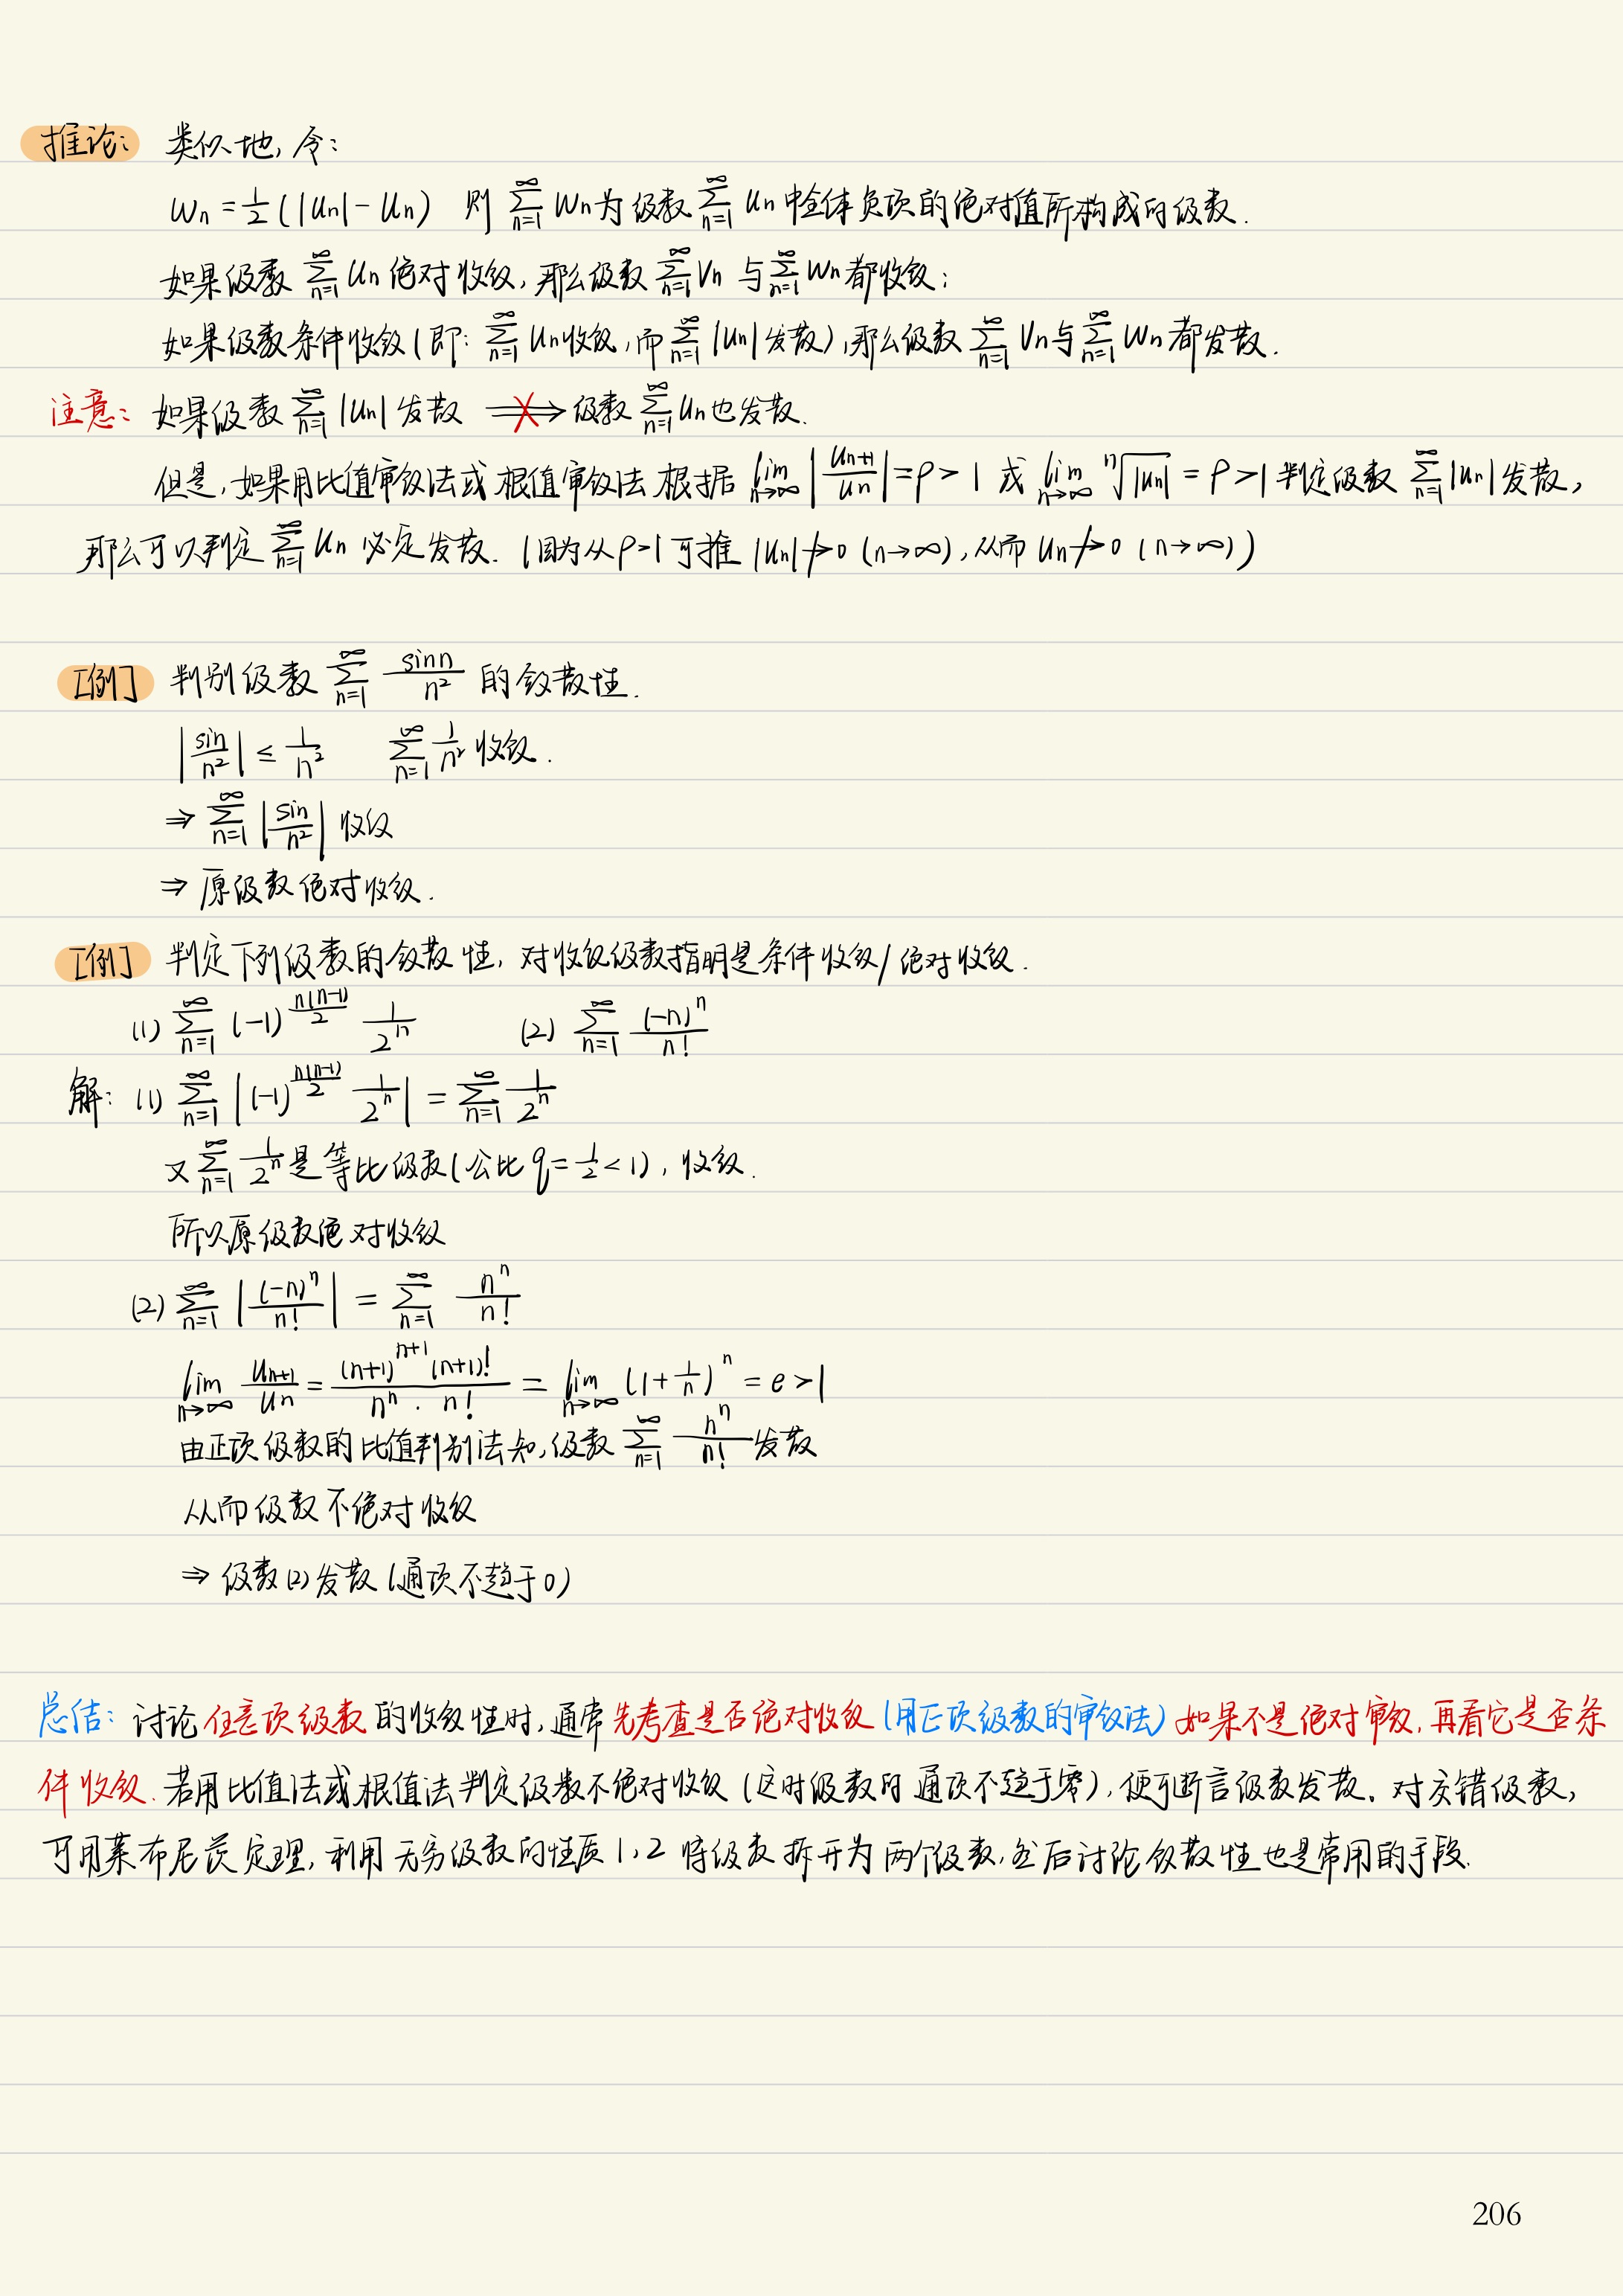 推论: 类似地, 令:
Wn = 1/2 (|Un| - Un) 则 ∑_{n=1}^{∞} Wn 为级数 ∑_{n=1}^{∞} Un 中全体负项的绝对值所构成的级数.
如果级数 ∑_{n=1}^{∞} Un 绝对收敛, 那么级数 ∑_{n=1}^{∞} Vn 与 ∑_{n=1}^{∞} Wn 都收敛;
如果级数条件收敛(即: ∑_{n=1}^{∞} Un 收敛, 而 ∑_{n=1}^{∞} |Un| 发散), 那么级数 ∑_{n=1}^{∞} Vn 与 ∑_{n=1}^{∞} Wn 都发散.
注意: 如果级数 ∑_{n=1}^{∞} |Un| 发散 ⇏ 级数 ∑_{n=1}^{∞} Un 也发散.
但是, 如果用比值审敛法或根值审敛法 根据 lim_{n→∞} |U_{n+1}/U_n| = ρ > 1 或 lim_{n→∞} ⁿ√|Un| = ρ > 1 判定级数 ∑_{n=1}^{∞} |Un| 发散,
那么可以判定 ∑_{n=1}^{∞} Un 必定发散. (因为从 ρ>1 可推 |Un| ↛ 0 (n→∞), 从而 Un ↛ 0 (n→∞))
[例] 判别级数 ∑_{n=1}^{∞} sinn/n² 的敛散性.
|sin/n²| ≤ 1/n² ∑_{n=1}^{∞} 1/n² 收敛.
⇒ ∑_{n=1}^{∞} |sin/n²| 收敛
⇒ 原级数绝对收敛.
[例] 判定下列级数的敛散性, 对收敛级数指明是条件收敛/绝对收敛.
(1) ∑_{n=1}^{∞} (-1)^{n(n-1)/2} 1/2^n (2) ∑_{n=1}^{∞} (-n)^n/n!
解: (1) ∑_{n=1}^{∞} |(-1)^{n(n-1)/2} 1/2^n| = ∑_{n=1}^{∞} 1/2^n
又 ∑_{n=1}^{∞} 1/2^n 是等比级数(公比 q = 1/2 < 1), 收敛.
所以原级数绝对收敛
(2) ∑_{n=1}^{∞} |(-n)^n/n!| = ∑_{n=1}^{∞} n^n/n!
lim_{n→∞} U_{n+1}/U_n = (n+1)^{n+1} (n+1)!/(n^n · n!) = lim_{n→∞} (1+1/n)^n = e > 1
由正项级数的比值判别法知, 级数 ∑_{n=1}^{∞} n^n/n! 发散
从而级数不绝对收敛
⇒ 级数(2)发散(通项不趋于0)
总结: 讨论任意项级数的收敛性时, 通常先考查是否绝对收敛(用正项级数的审敛法)如果不是绝对审敛, 再看它是否条
件收敛. 若用比值法或根值法判定级数不绝对收敛(这时级数的通项不趋于零), 便可断言级数发散. 对交错级数,
可用莱布尼茨定理, 利用无穷级数的性质1,2 将级数拆开为两个级数, 然后讨论敛散性也是常用的手段.
206